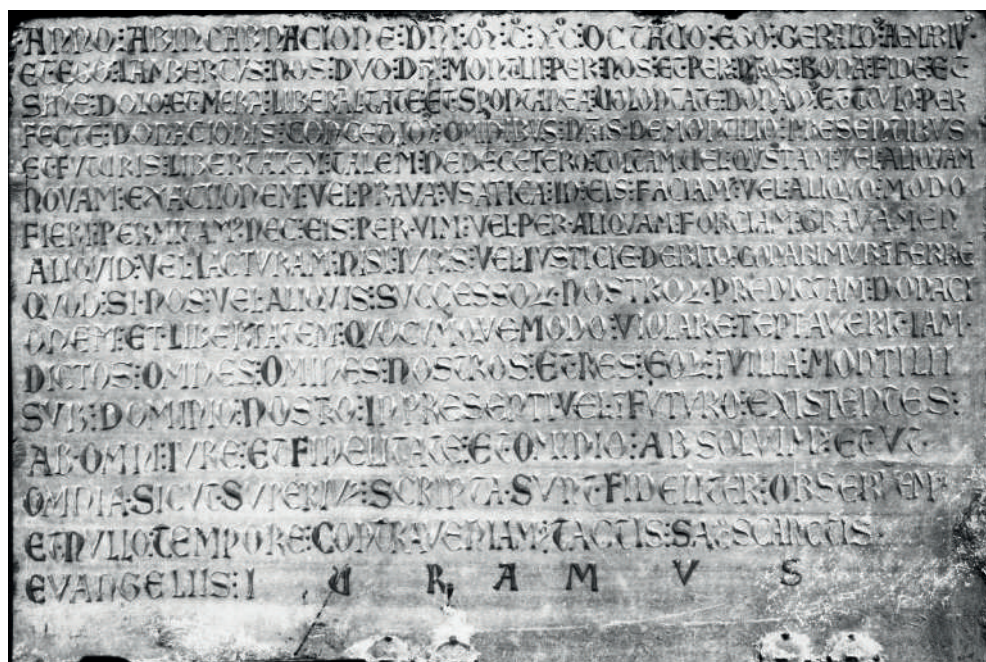 ANNO : AB INCARNACIONE : DNI : M : C : XC : OCTAVO : EGO : GERALD : AEMARIV ·
ET EGO : LAMBERTVS : NOS : DVO : DNI : MONTILII : PER NOS : ET PER : NROS : BONA FIDE ET
SINE : DOLO : ET MERA : LIBERALITATE ET : SPONTANEA : VOLONTATE : DONAM : ET TITVLO : PER
FECTE : DONACIONIS : CONCEDIM : OMINIBVS : NRIS : DE MONTILIO : PRESENTIBVS
ET FVTVRIS : LIBERTATEM : TALEM : NE DE CETERO : TOLTAM : VEL : QVSTAM : VEL : ALIQVAM
NOVAM : EXACTIONEM : VEL : PRAVA : VSATICA : IN : EIS : FACIAM : VEL : ALIQVO : MODO
FIERI : PERMITAM : NEC : EIS : PER · VIM : VEL · PER · ALIQVAM : FORCIAM : GRAVAMEN
ALIQVID : VEL : IACTVRAM : NISI : IVRIS : VEL : IVSTICIE : DEBITO : COPARIMVR : IFERRE
QVOD : SI · NOS : VEL : ALIQVIS : SVCCESSOR · NOSTROR · PREDICTAM : DONACI
ONEM : ET · LIBERTATEM : QVOCVMQVE MODO : VIOLARE : TEPTAVERIT · IAM ·
DICTOS : OMNES : OMINES : NOSTROS : ET RES : EOR : I VILLA : MONTILII
SVB : DOMINIO : NOSTRO : IN PRESENTI : VEL : I FVTVRO : EXISTENTES :
AB · OMNI : IVRE : ET FIDELITATE : ET OMINIO : ABSOLVIM : ET VT ·
OMNIA : SICVT · SVPERIV : SCRIPTA · SVNT · FIDELITER · OBSERVEM ·
ET · NVLLO : TEMPORE : CONTRAVENIAM : TACTIS : SACSCANCTIS ·
EVANGELIIS : I U R A M V S